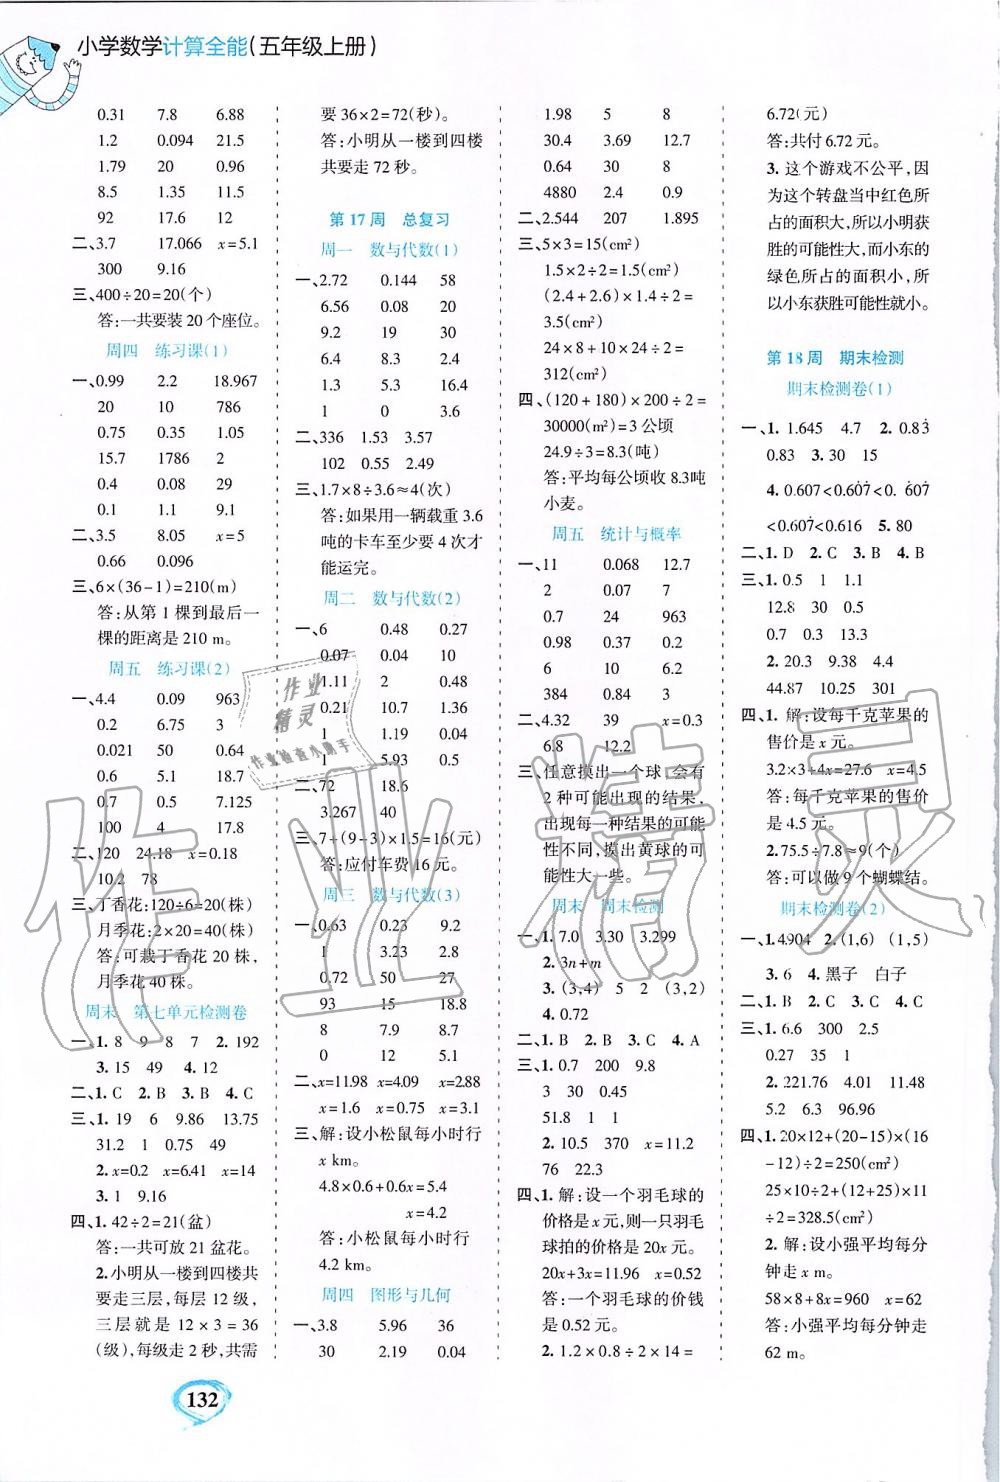 小学数学计算全能(五年级上册)
0.31 7.8 6.88
1.2 0.094 21.5
1.79 20 0.96
8.5 1.35 11.5
92 17.6 12
二、3.7 17.066 x=5.1
300 9.16
三、400÷20=20(个)
答:一共要装20个座位。
周四 练习课(1)
一、0.99 2.2 18.967
20 10 786
0.75 0.35 1.05
15.7 1786 2
0.4 0.08 29
0.1 1.1 9.1
二、3.5 8.05 x=5
0.66 0.096
三、6×(36-1)=210(m)
答:从第1棵到最后一
棵的距离是210 m。
周五 练习课(2)
一、4.4 0.09 963
0.2 6.75 3
0.021 50 0.64
0.6 5.1 18.7
0.7 0.5 7.125
100 4 17.8
二、120 24.18 x=0.18
10.2 78
三、丁香花:120÷6=20(株)
月季花:2×20=40(株)
答:可栽丁香花20株,
月季花40株。
周末 第七单元检测卷
一、1. 8 9 8 7 2. 192
3. 15 49 4. 12
二、1. C 2. B 3. B 4. C
三、1. 19 6 9.86 13.75
31.2 1 0.75 49
2. x=0.2 x=6.41 x=14
3. 1 9.16
四、1. 42÷2=21(盆)
答:一共可放21盆花。
2. 小明从一楼到四楼共
要走三层,每层12级,
三层就是12×3=36
(级),每级走2秒,共需
要36×2=72(秒)。
答:小明从一楼到四楼
共要走72秒。
第17周 总复习
周一 数与代数(1)
一、2.72 0.144 58
6.56 0.08 20
9.2 19 30
6.4 8.3 2.4
1.3 5.3 16.4
1 0 3.6
二、336 1.53 3.57
102 0.55 2.49
三、1.7×8÷3.6≈4(次)
答:如果用一辆载重3.6
吨的卡车至少要4次才
能运完。
周二 数与代数(2)
一、6 0.48 0.27
0.07 0.04 10
1.11 2 0.48
0.21 10.7 1.36
1 1.19 0.04
1 5.93 0.5
二、72 18.6
3.267 40
三、7+(9-3)×1.5=16(元)
答:应付车费16元。
周三 数与代数(3)
一、0.63 0.23 9.2
1 3.23 2.8
0.72 50 27
93 15 18.8
8 7.9 8.7
0 12 5.1
二、x=11.98 x=4.09 x=2.88
x=1.6 x=0.75 x=3.1
三、解:设小松鼠每小时行
x km。
4.8×0.6+0.6x=5.4
x=4.2
答:小松鼠每小时行
4.2 km。
周四 图形与几何
一、3.8 5.96 36
30 2.19 0.04
1.98 5 8
30.4 3.69 12.7
0.64 30 8
4880 2.4 0.9
二、2.544 207 1.895
三、5×3=15(cm²)
1.5×2÷2=1.5(cm²)
(2.4+2.6)×1.4÷2=
3.5(cm²)
24×8+10×24÷2=
312(cm²)
四、(120+180)×200÷2=
30000(m²)=3公顷
24.9÷3=8.3(吨)
答:平均每公顷收8.3吨
小麦。
周五 统计与概率
一、11 0.068 12.7
2 0.07 7
0.7 24 963
0.98 0.37 0.2
6 10 6.2
384 0.84 3
二、4.32 39 x=0.3
6.8 12.2
三、任意摸出一个球,会有
2种可能出现的结果,
出现每一种结果的可能
性不同,摸出黄球的可
能性大一些。
周末 周末检测
一、1. 7.0 3.30 3.299
2. 3n+m
3. (3,4) 5 2 (3,2)
4. 0.72
二、1. B 2. B 3. C 4. A
三、1. 0.7 200 9.8
3 30 0.45
51.8 1 1
2. 10.5 370 x=11.2
76 22.3
四、1. 解:设一个羽毛球的
价格是x元,则一只羽毛
球拍的价格是20x元。
20x+3x=11.96 x=0.52
答:一个羽毛球的价钱
是0.52元。
2. 1.2×0.8÷2×14=
6.72(元)
答:共付6.72元。
3. 这个游戏不公平,因
为这个转盘当中红色所
占的面积大,所以小明获
胜的可能性大,而小东的
绿色所占的面积小,所
以小东获胜可能性就小。
第18周 期末检测
期末检测卷(1)
一、1. 1.645 4.7 2. 0.83̇
0.83 3. 30 15
4. 0.607<0.607̇<0.6̇07̇
<0.60̇7̇<0.616 5. 80
二、1. D 2. C 3. B 4. B
三、1. 0.5 1 1.1
12.8 30 0.5
0.7 0.3 13.3
2. 20.3 9.38 4.4
44.87 10.25 301
四、1. 解:设每千克苹果的
售价是x元。
3.2×3+4x=27.6 x=4.5
答:每千克苹果的售价
是4.5元。
2. 75.5÷7.8≈9(个)
答:可以做9个蝴蝶结。
期末检测卷(2)
一、1. 4.904 2. (1,6) (1,5)
3. 6 4. 黑子 白子
二、1. B 2. C 3. C 4. B
三、1. 6.6 300 2.5
0.27 35 1
2. 221.76 4.01 11.48
5.2 6.3 96.96
四、1. 20×12+(20-15)×(16
-12)÷2=250(cm²)
25×10÷2+(12+25)×11
÷2=328.5(cm²)
2. 解:设小强平均每分
钟走x m。
58×8+8x=960 x=62
答:小强平均每分钟走
62 m。
132
作业精灵
作业精灵
作业检查小助手